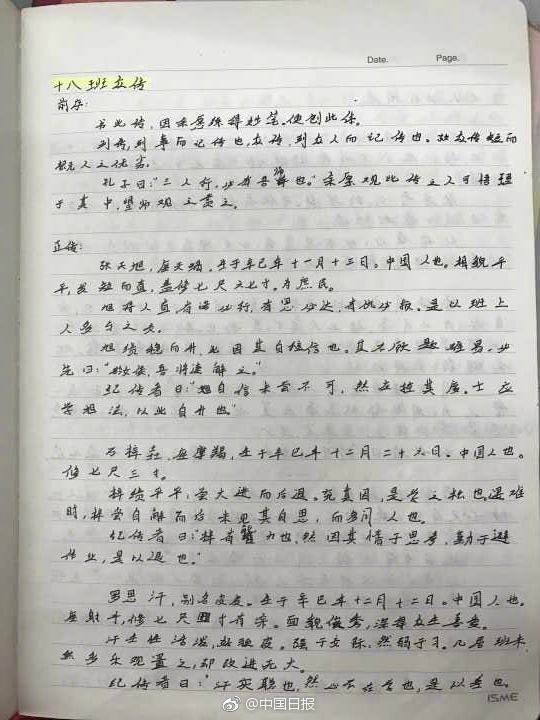 Date. Page.
十八班友传
前序:
书此传,因亲原殊得妙笔。便创此传。
列传,列事而记传也,友传,列友人而记传也。故友传短而
观人之优劣。
孔子曰:"三人行,必有吾师也。"亲原观此传之人可悟理
于其中,望师观之贵之。
正传:
张天旭,座天蝎,生于辛巳年十一月十三日。中国人也。相貌平
平,发短而直,盖修七尺又七寸。为庶民。
旭将人直,有语必行,有思必达,有仇必报。是以班上
人多与之友。
旭绩稳而升,此因其自强信也。其不欣题难易,必
先曰:"哈侯,吾将速解之。"
纪传者曰:"旭自信未尝不可,然应控其度。上应
学相法,以此自升也"
石梓森,座摩羯,生于辛巳年十二月二十六日。中国人也。
修七尺三寸。
梓绩平平,尝大进而后退。究真因,是其之松也。遇难
时,梓尝自解而后未见其自思,而多问人也。
纪传者曰:梓有能力也,然因其惰于思考,勤于避
作业,是以退也。"
罗思汗,别名皮皮。生于辛巳年十二月十二日。中国人也。
座射手,修七尺四寸有余。面貌俊秀,深得女生喜爱。
汗生性活泼,敢顽皮。强于交际,然弱于习。几居班末
纪传者曰:"汗实聪也,然心不在学也,是以差也。
ISME
@中国日报